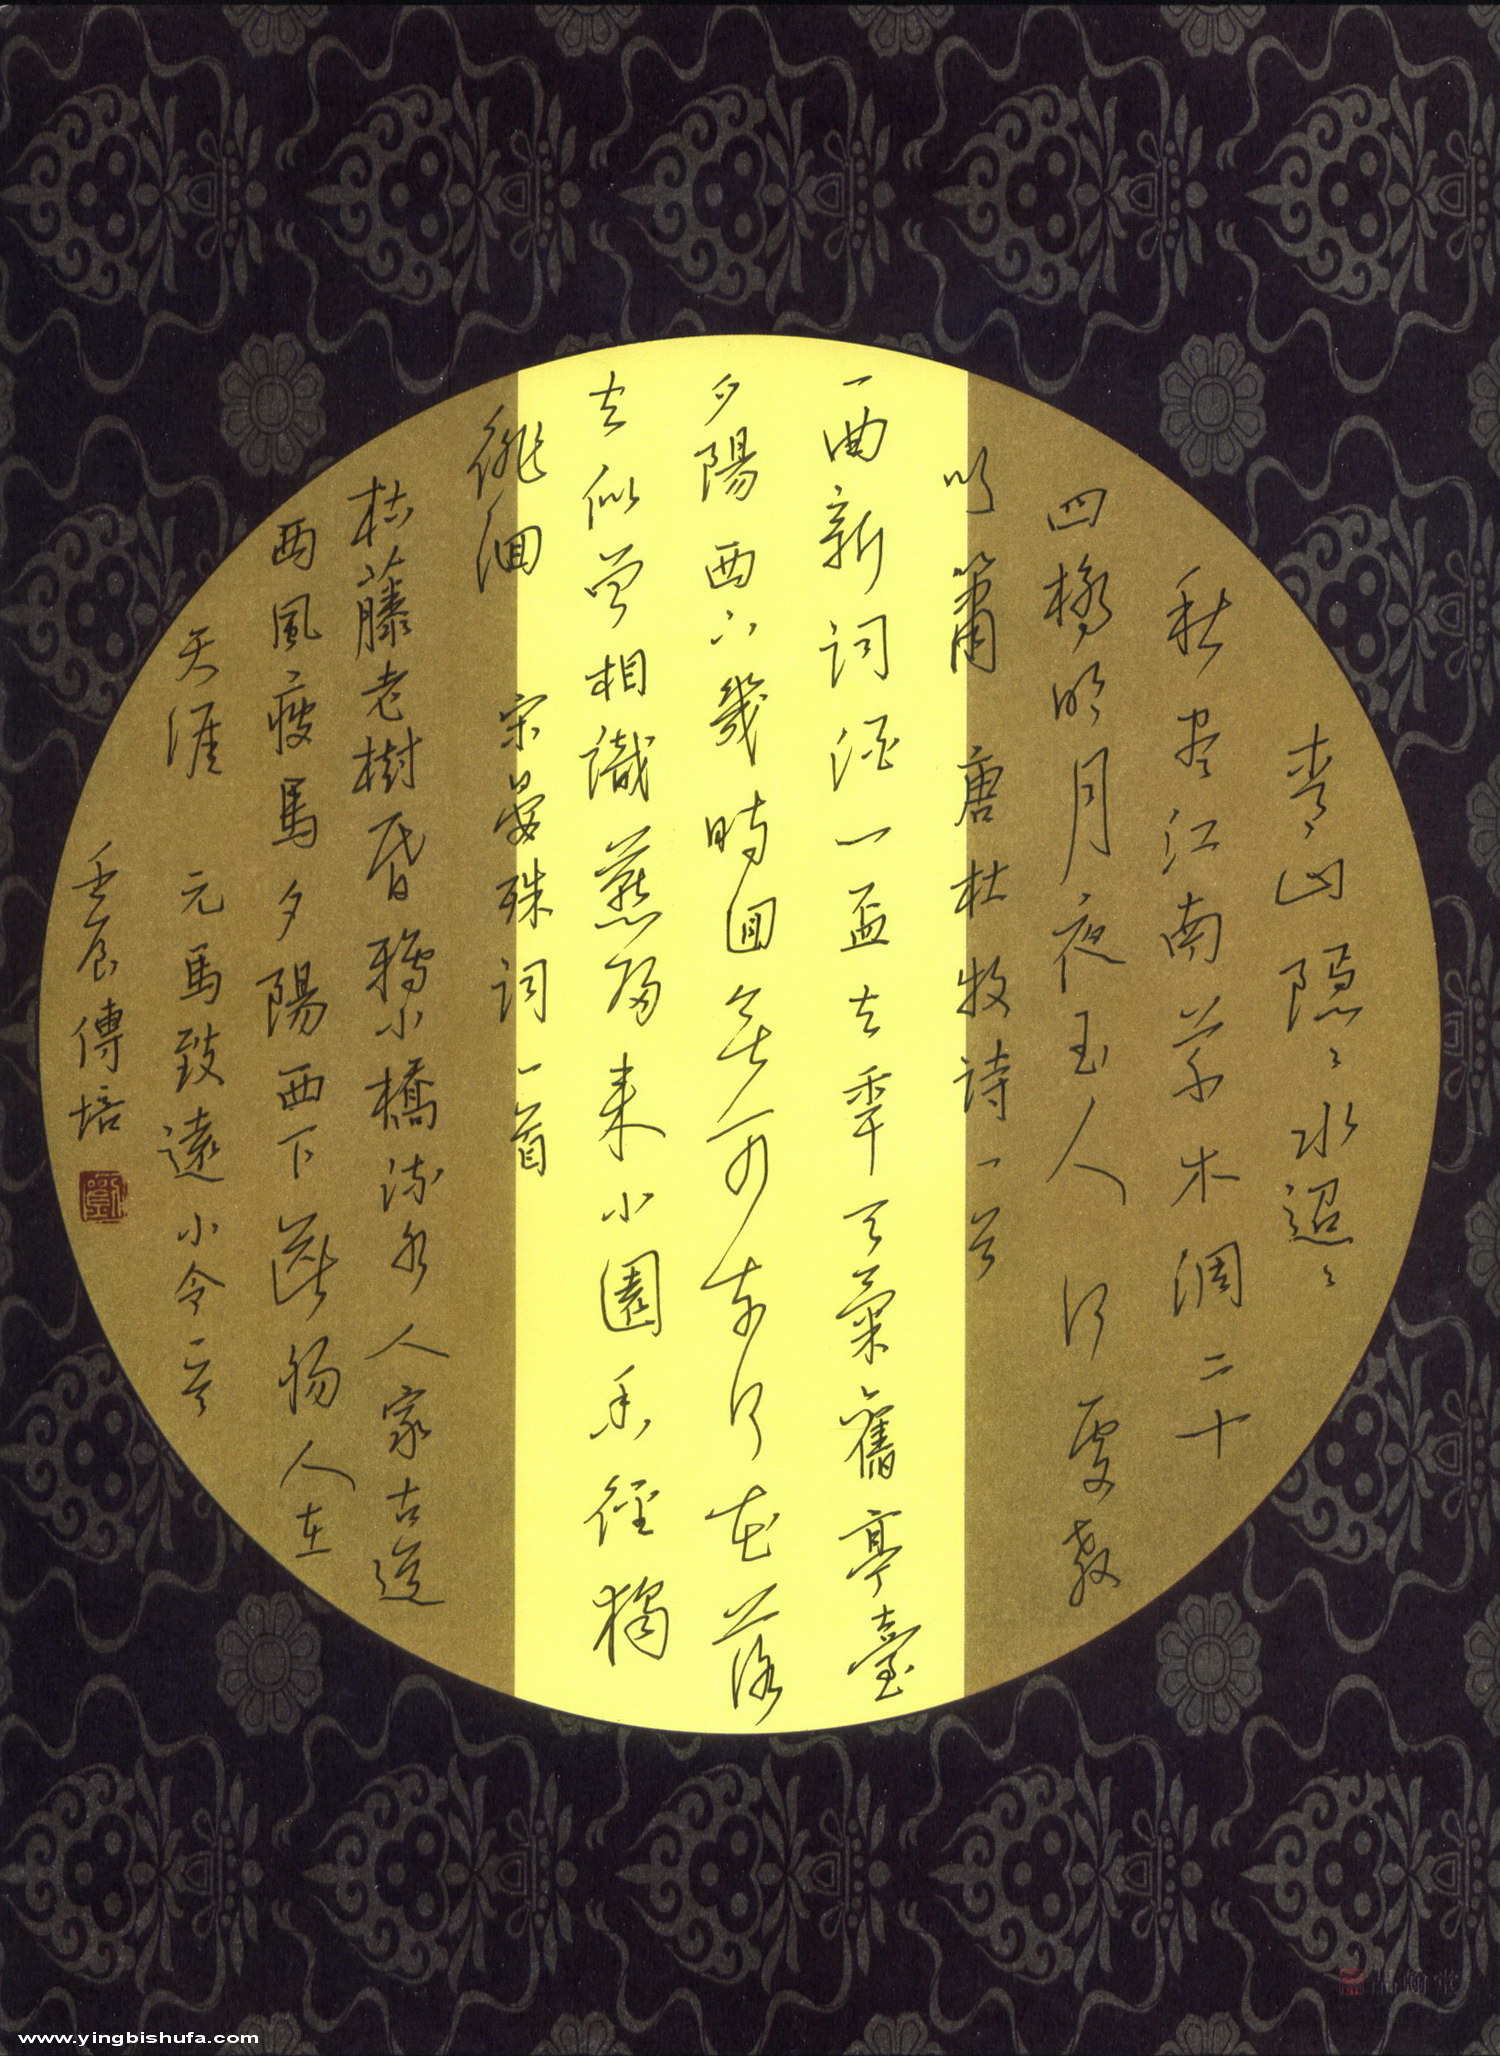 青山隱〻水迢〻
秋尽江南草木凋二十
四橋明月夜玉人何處教
吹簫 唐杜牧詩一首
一曲新詞酒一盃去年天氣舊亭臺
夕陽西下幾時回無可奈何花落
去似曾相識燕歸来小園香徑獨
徘徊 宋晏殊詞一首
枯藤老樹昏鴉小橋流水人家古道
西風瘦馬夕陽西下斷腸人在
天涯 元馬致遠小令一首
壬辰傳培
劉
www.yingbishufa.com